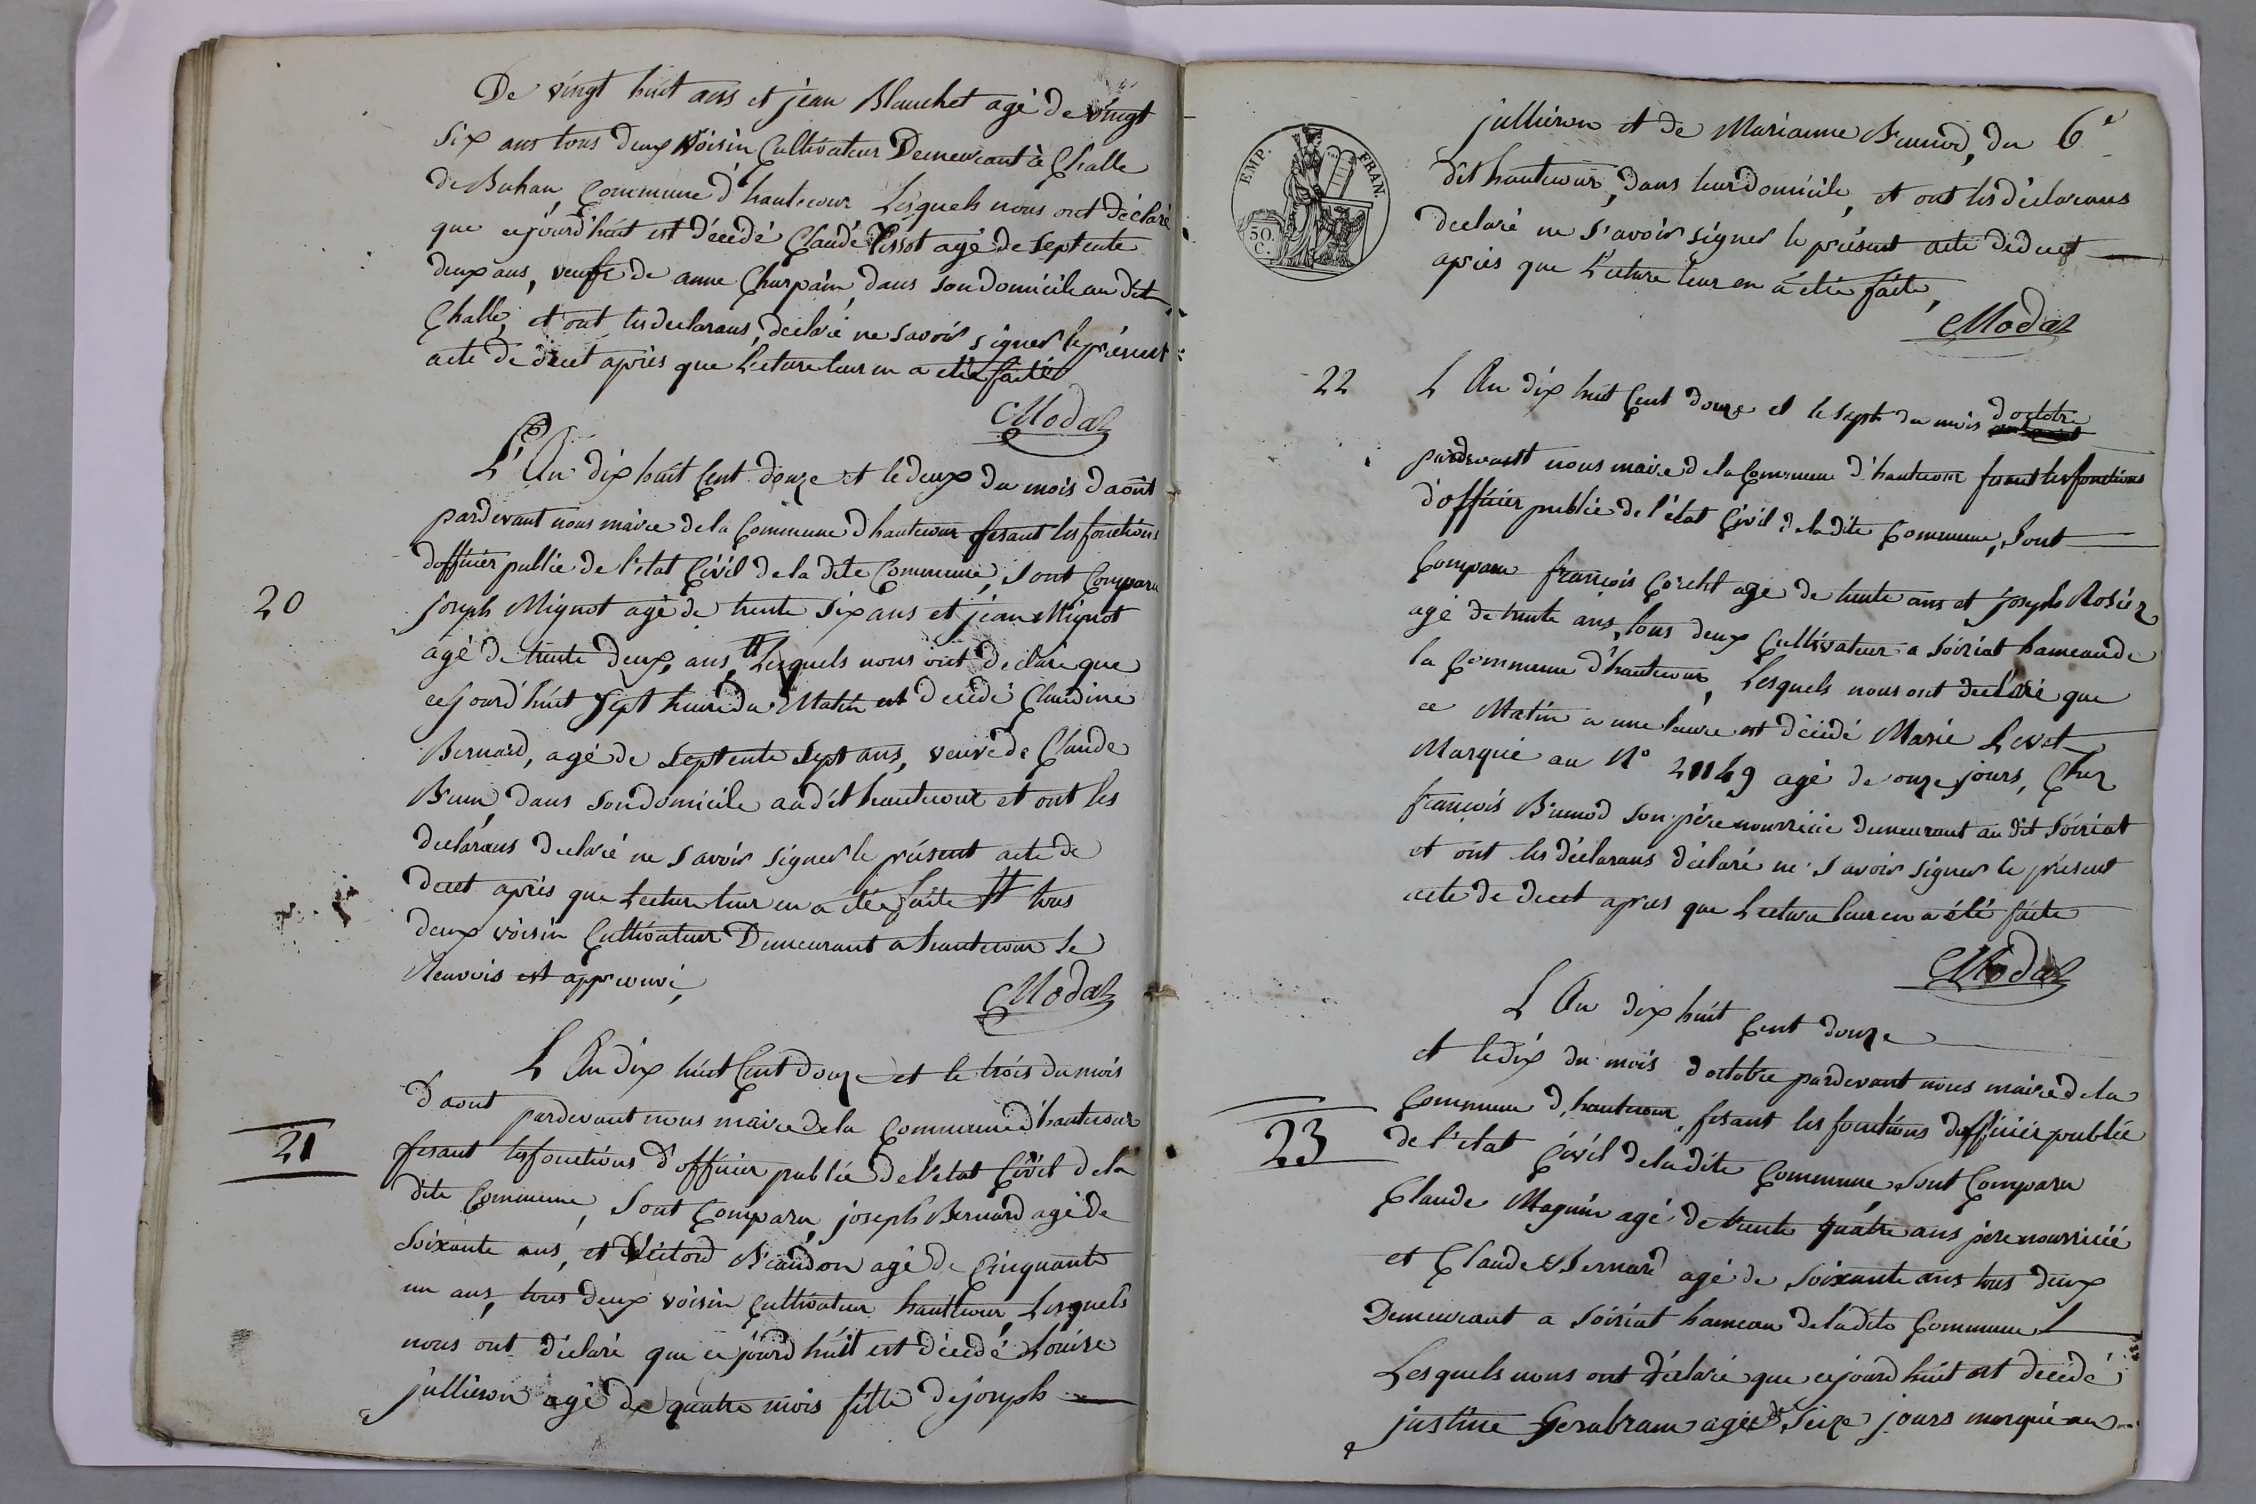 De vingt huit ans et jean Blanchet agé de vingt
six ans tous deux voisin Cultivateur Demeurant à Challe
de Bohan, Commune d'hautecour Lesquels nous ont déclaré
que cejourd'huit est décédé Claude Tissot agé de septente
deux ans, veufe de anne Charpain dans son domicile au dit
Challe, et ont les declarans, declaré ne savoir signer le présent
acte de decet après que Lecture leur en a etée faite
Modaz
L'An dix huit Cent douze et le deux du mois d'août
pardevant nous maire de la Commune d'hautecour fesant les fonctions
d'officier public de l'etat Civil de la dite Commune, sont Comparu
20
joseph Mignot agé de trente six ans et jean Mignot
agé de trente deux ans, # Lesquels nous ont declaré que
cejourd'huit sept heure du Matin est decedé Claudine
Bernard, agé de septente sept ans, veuve de Claude
Brun, dans son domicile audit hautecour et ont les
declarans declaré ne savoir signer le présent acte de
decet après que Lecture leur en a étée faite # tous
deux voisin Cultivateur Demeurant a hautecour le
Renvois est approuvé,
Modaz
L An dix huit Cent douze et le trois du mois
d'aout pardevant nous maire de la Commune d'hautecour
21
fesant les fonctions d'officier public de l'etat Civil de la
dite Commune, sont Comparu, joseph Bernard agé de
soixante ans, et agé de Cinquante
un ans, tous deux voisin Cultivateur hautecour, Lesquels
nous ont déclaré que cejourd'huit est décedé Louise
jullieron agé de quatre mois fille de joseph
6e
jullieron et de Marianne Brunod, du
dit hautecour, dans leur domicile, et ont les déclarans
declaré ne savoir signer le présent acte de decet
après que Lecture leur en a étée faite,
Modaz
EMP. FRAN.
50 C.
22
L An dix huit Cent douze et le sept du mois d'octobre
pardevant nous maire de la Commune d'hautecour fesant les fonctions
d'officier public de l'état Civil de la dite Commune, sont
Comparu françois agé de trente ans et joseph Rosier
agé de trente ans, tous deux Cultivateur a soiriat hameau de
la Commune d'hautecour, Lesquels nous ont declaré que
ce Matin a une heure est décédé Marie Levet
Marqué au N° agé de onze jours, Chez
françois Brunod son père nourricie demeurant au dit soiriat
et ont les déclarans déclaré ne savoir signer le présent
acte de decet après que Lecture leur en a été faite
Modaz
L An dix huit Cent douze
et le dix du mois d'octobre pardevant nous maire de la
Commune d'hautecour, fesant les fonctions d'officier public
23
de l'etat Civil de la dite Commune, sont Comparu
Claude Magnin agé de trente quatre ans père nourricié
et Claude Bernard agé de soixante ans tous deux
Demeurant a soiriat hameau de la dite Commune
Lesquels nous ont déclaré que cejourd'huit est décédé
justine Gerabram agée de seize jours marqué au